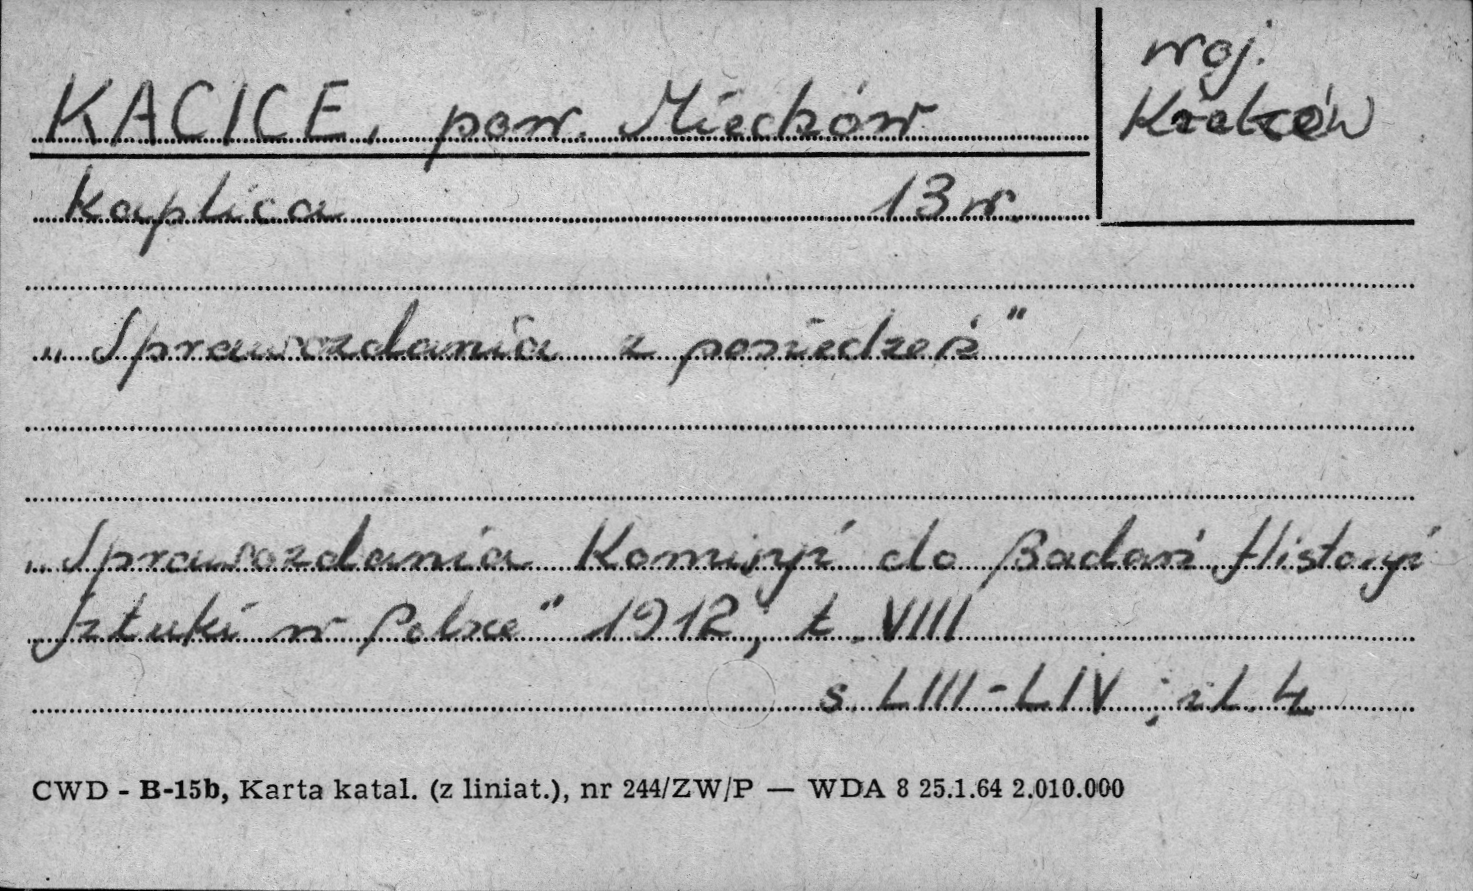 KACICE, pow. Miechów
woj.
Kraków
kaplica 13 w.
„Sprawozdania z posiedzeń"
„Sprawozdania Komisyi do Badań Historyi
Sztuki w Polsce" 1912, t. VIII
s. LIII-LIV; il. 4
CWD - B-15b, Karta katal. (z liniat.), nr 244/ZW/P — WDA 8 25.1.64 2.010.000